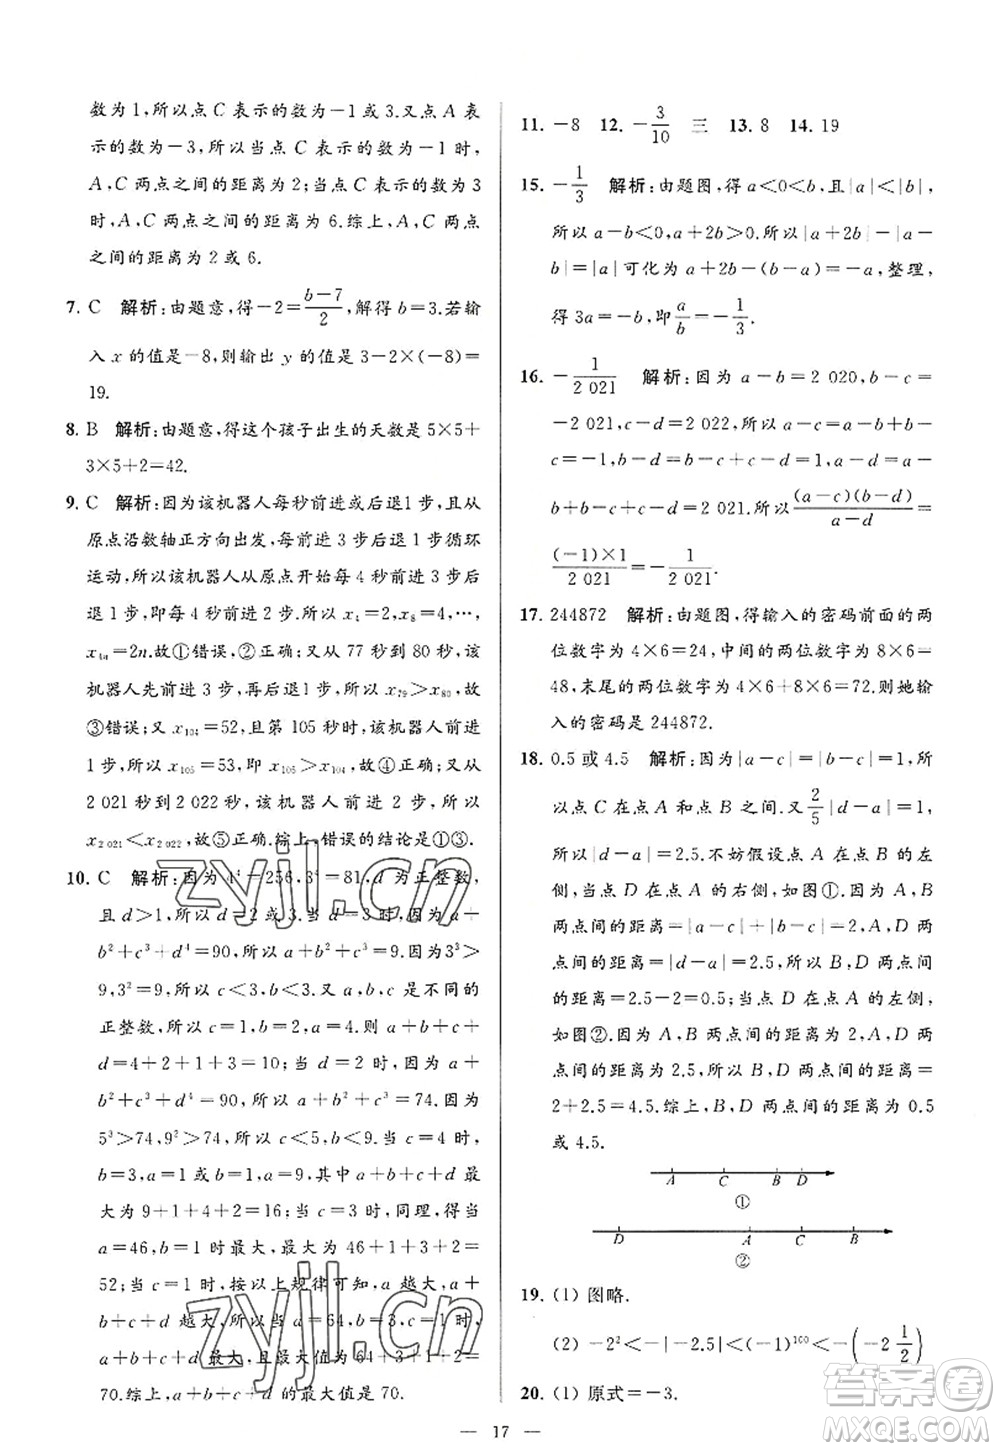 数为1,所以点C表示的数为-1或3.又点A表示
的数为-3,所以当点C表示的数为-1时,
A,C两点之间的距离为2;当点C表示的数为3
时,A,C两点之间的距离为6.综上,A,C两点
之间的距离为2或6.
7. C 解析:由题意,得-2=\frac{b-7}{2},解得b=3.若输
入x的值是-8,则输出y的值是3-2×(-8)=
19.
8. B 解析:由题意,得这个孩子出生的天数是5×5+
3×5+2=42.
9. C 解析:因为该机器人每秒前进或后退1步,且从
原点沿数轴正方向出发,每前进3步后退1步循环
运动,所以该机器人从原点开始每4秒前进3步后
退1步,即每4秒前进2步.所以x₄=2,x₈=4,…,
x₄ₙ=2n.故①错误,②正确;又从77秒到80秒,该
机器人先前进3步,再后退1步,所以x₇₉>x₈₀,故
③错误;又x₁₀₄=52,且第105秒时,该机器人前进
1步,所以x₁₀₅=53,即x₁₀₅>x₁₀₄,故④正确;又从
2 021秒到2 022秒,该机器人前进1步,所以
x₂ ₀₂₁<x₂ ₀₂₂,故⑤正确.综上,错误的结论是①③.
10. C 解析:因为4⁴=256,3⁴=81,d为正整数,
且d>1,所以d=2或3.当d=3时,因为a+
b²+c³+d⁴=90,所以a+b²+c³=9.因为3³>
9,3²=9,所以c<3,b<3.又因为a,b,c均为
正整数,所以c=1,b=2,a=4.则a+b+c+
d=4+2+1+3=10;当d=2时,因为a+
b²+c³+d⁴=90,所以a+b²+c³=74.因为
5³>74,9²>74,所以c<5,b<9.当c=4时,
b=3,a=1或b=1,a=9,其中a+b+c+d最
大为9+1+4+2=16;当c=3时,同理,得当
a=46,b=1时最大,最大为46+1+3+2=
52;当c=1时,按以上规律可知,a越大,a+
b+c+d越大,所以当a=64,b=3时,a+
b+c+d最大,且最大值为64+3+1+2=
70.综上,a+b+c+d的最大值是70.
11. -8 12. -\frac{3}{10} 三 13. 8 14. 19
15. -\frac{1}{3} 解析:由题图,得a<0<b,且|a|<|b|,
所以a-b<0,a+2b>0.所以|a+2b|-|a-
b|=|a|可化为a+2b-(b-a)=-a,整理,
得3a=-b,即\frac{a}{b}=-\frac{1}{3}.
16. -\frac{1}{2 021} 解析:因为a-b=2 020,b-c=
-2 021,c-d=2 022,所以a-c=a-b+b-
c=-1,b-d=b-c+c-d=1,a-d=a-
b+b-c+c-d=2 021.所以\frac{(a-c)(b-d)}{a-d}=
\frac{(-1)×1}{2 021}=-\frac{1}{2 021}.
17. 244872 解析:由题图,得输入的密码前面的两
位数字为4×6=24,中间的两位数字为8×6=
48,末尾的两位数字为4×6+8×6=72.则她输
入的密码是244872.
18. 0.5或4.5 解析:因为|a-c|=|b-c|=1,所
以点C在点A和点B之间.又\frac{2}{5}|d-a|=1,
所以|d-a|=2.5.不妨假设点A在点B的左
侧,当点D在点A的右侧时,如图①.因为A,B
两点间的距离为|a-c|+|b-c|=2,A,D两点
间的距离为|d-a|=2.5,所以B,D两点间的
距离为2.5-2=0.5;当点D在点A的左侧时,
如图②.因为A,B两点间的距离为2,A,D两
点间的距离为2.5,所以B,D两点间的距离为
2+2.5=4.5.综上,B,D两点间的距离为0.5
或4.5.
A C B D
①
D A C B
②
19. (1) 图略.
(2) -2²<-|-2.5|<(-1)¹⁰⁰<-(-2\frac{1}{2}).
20. (1) 原式=-3.
— 17 —
zyjl.cn
zyjl.cn
答案圈
MXQE.COM